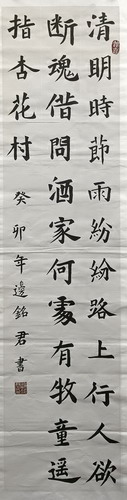 清明時節雨紛紛路上行人欲
断魂借問酒家何處有牧童遥
指杏花村
癸卯年邊銘君書